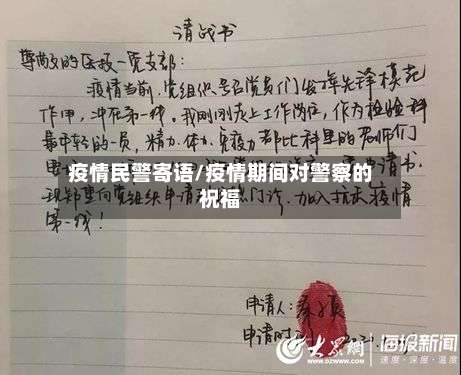 请战书
尊敬的医技一党支部：
疫情当前，党组织号召党员们发挥先锋模范
作用，冲在第一线。我刚刚走上工作岗位，作为检验科
最年轻的一员，精力、体力、免疫力都比科里的老师们
疫情民警寄语/疫情期间对警察的
祝福
申请书，
现郑重向党组织申请 热门诊，加入抗击疫情
第一线！
申请人：
申请时
大众网 海报新闻
www.dzwww.com 速度·深度·温度